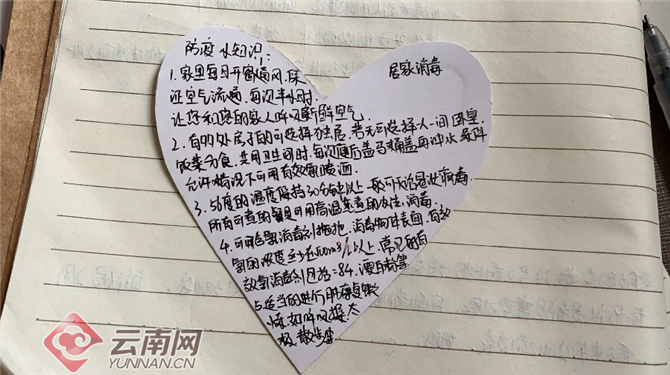 防疫小知识:
居家消毒
1.家里每日开窗通风,保
证空气流通,每次半小时.
让您和您的家人呼吸新鲜空气.
2.有多处房子的可选择独居,若无可选择人一间卧室,
饭菜分食,共用卫生间时,每次便后盖马桶盖再冲水,条件
允许情况下可用有效氯喷洒.
3.56度的温度保持30分钟以上一般可灭活冠状病毒
所有可煮的餐具可用高温蒸煮的办法,消毒.
4.可用含氯消毒剂拖地,消毒物体表面,有效
氯的浓度至少在500mg/L以上,常见的有
效氯消毒剂包括:84,漂白粉等
5.适当的进行肺康复锻
炼,如呼吸操,太
极,散步等
云南网
YUNNAN.CN